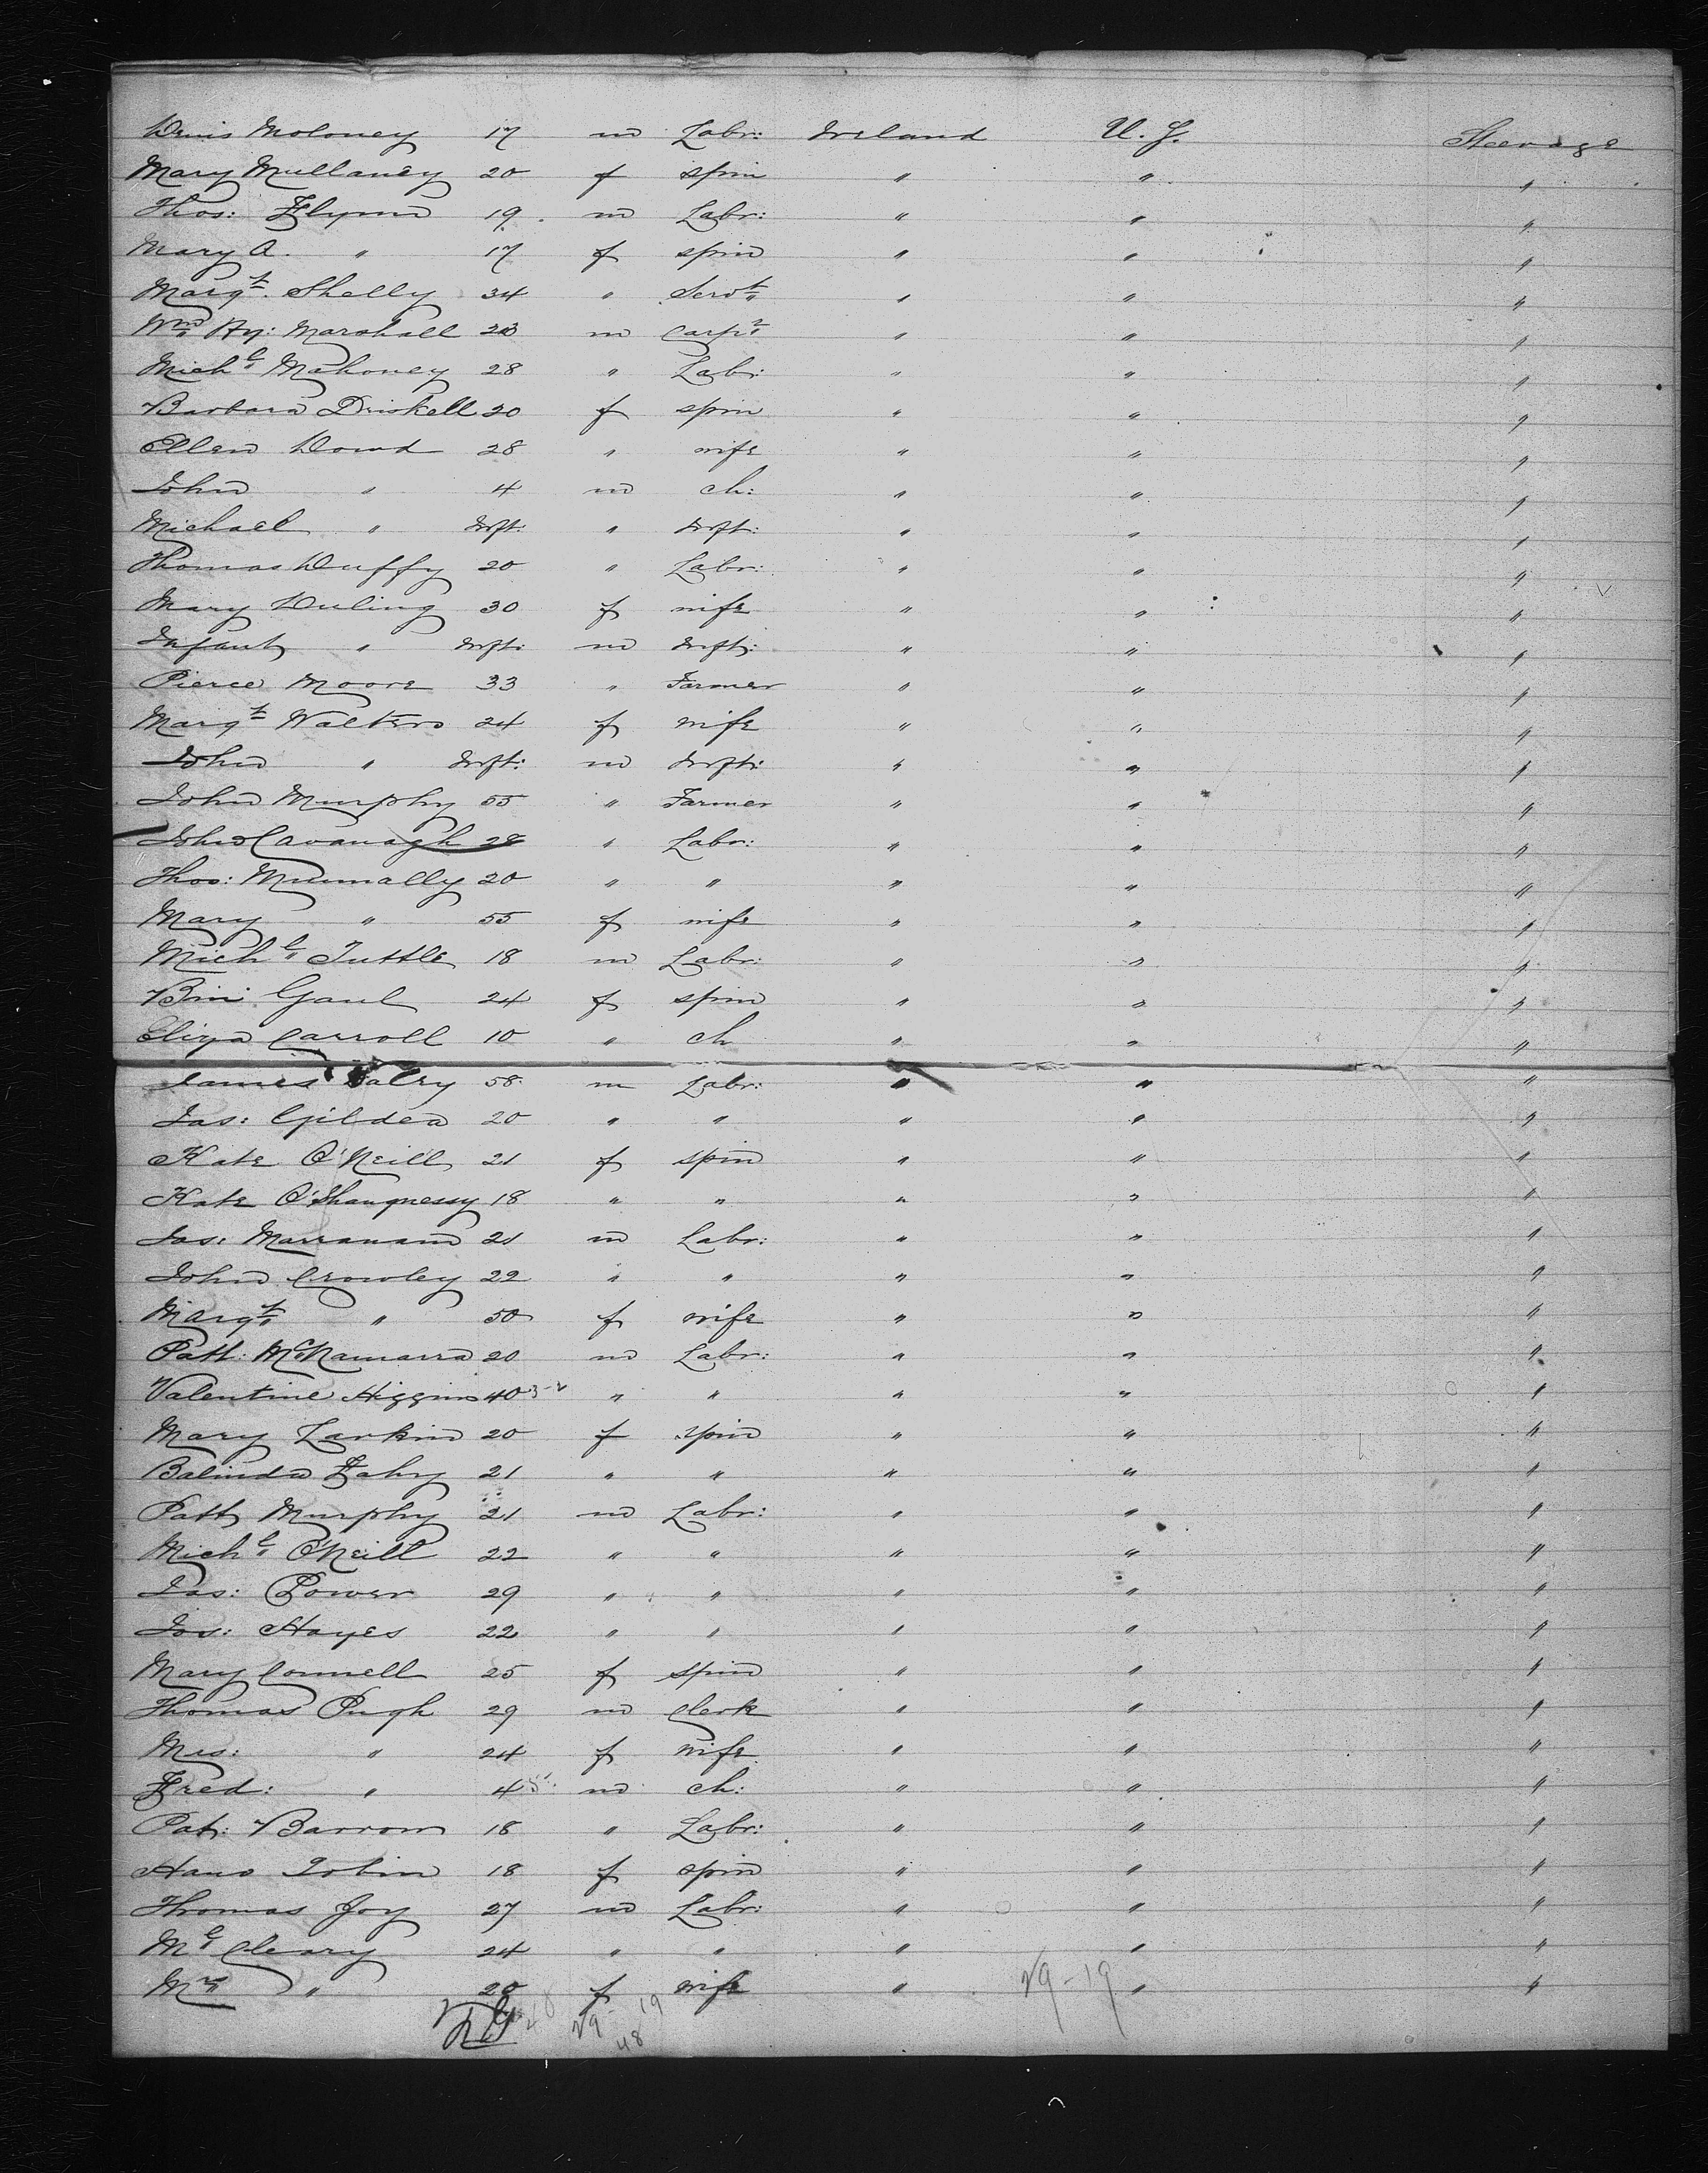 Denis Moloney 17 m Labr: Ireland U.S. Steerage
Mary Mullaney 20 f spin " " "
Thos: Flynn 19 m Labr: " " "
Mary A. " 17 f spin " " "
Margt. Shelly 34 " Servt " " "
Wm Hy: Marshall 23 m Carpr " " "
Michl Mahoney 28 " Labr: " " "
Barbara Driskell 20 f spin " " "
Ellen Dowd 28 " wife " " "
John " 4 m ch: " " "
Michael " Inft: " Inft: " " "
Thomas Duffy 20 " Labr: " " "
Mary Duling 30 f wife " " "
Infant " Inft: m Inft: " " "
Pierce Moore 33 " Farmer " " "
Margt Walters 24 f wife " " "
John " Inft: m Inft: " " "
John Murphy 55 " Farmer " " "
John Cavanagh 28 " Labr: " " "
Thos: Munnally 20 " " " " "
Mary " 55 f wife " " "
Michl Tuttle 18 m Labr: " " "
Bin: Gaul 24 f spin " " "
Eliza Carroll 10 " ch " " "
James 58 m Labr: " " "
Jas: Gildea 20 " " " " "
Kate O'Neill 21 f spin " " "
Kate O'Shaugnessy 18 " " " " "
Jas: Marranan 21 m Labr: " " "
John Crowley 22 " " " " "
Margt " 50 f wife " " "
Patt: McNamarra 20 m Labr: " " "
Valentine Higgins 40 3-2 " " " " "
Mary Larkin 20 f spin " " "
Balinda Fahy 21 " " " " "
Patt Murphy 21 m Labr: " " "
Michl O'Neill 22 " " " " "
Jas: Power 29 " " " " "
Jos: Hayes 22 " " " " "
Mary Connell 25 f spin " " "
Thomas Pugh 29 m Clerk " " "
Mrs: " 24 f wife " " "
Fred: " 4 m ch: " " "
Pat: Barron 18 " Labr: " " "
Hano Tobin 18 f spin " " "
Thomas Joy 27 m Labr: " " "
Ml Cleary 24 " " " " "
Mrs " 20 f wife " " "
29-19
29-19
48